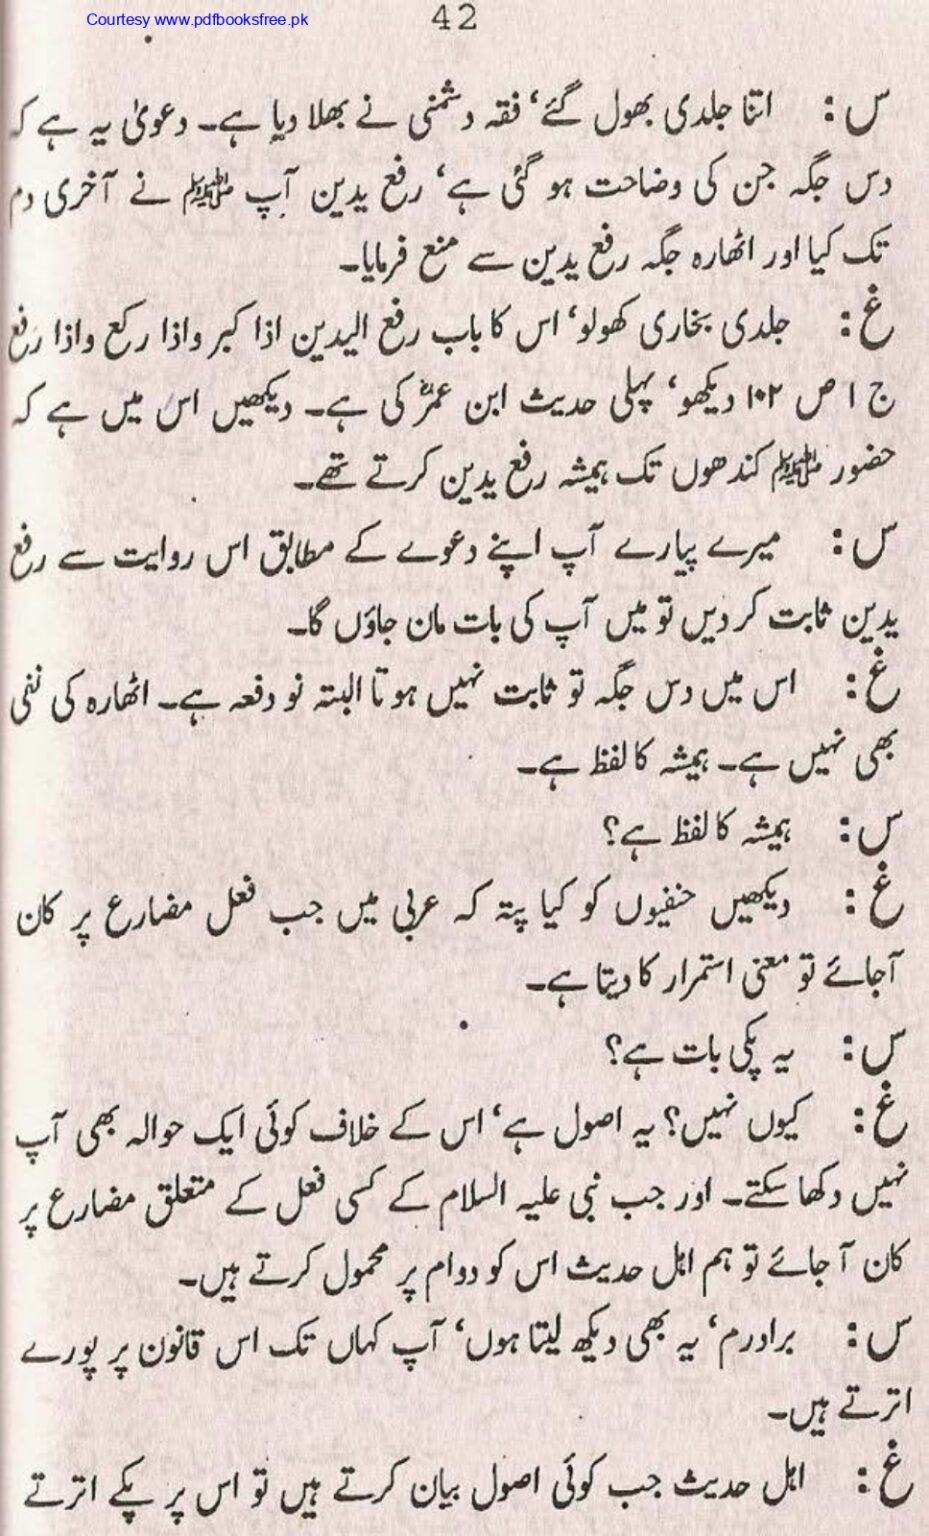 Courtesy www.pdfbooksfree.pk
42
س: اتنا جلدی بھول گئے، فقہ دشمنی نے بھلا دیا ہے۔ دعویٰ یہ ہے کہ
دس جگہ جن کی وضاحت ہو گئی ہے، رفع یدین آپ ﷺ نے آخری دم
تک کیا اور اٹھارہ جگہ رفع یدین سے منع فرمایا۔
غ: جلدی بخاری کھولو، اس کا باب رفع الیدین اذا کبر واذا رکع واذا رفع
ج ۱ ص ۱۰۲ دیکھو، پہلی حدیث ابن عمرؓ کی ہے۔ دیکھیں اس میں ہے کہ
حضور ﷺ کندھوں تک ہمیشہ رفع یدین کرتے تھے۔
س: میرے پیارے آپ اپنے دعوے کے مطابق اس روایت سے رفع
یدین ثابت کر دیں تو میں آپ کی بات مان جاؤں گا۔
غ: اس میں دس جگہ تو ثابت نہیں ہوتا البتہ نو دفعہ ہے۔ اٹھارہ کی نفی
بھی نہیں ہے۔ ہمیشہ کا لفظ ہے۔
س: ہمیشہ کا لفظ ہے؟
غ: دیکھیں حنفیوں کو کیا پتہ کہ عربی میں جب فعل مضارع پر کان
آجائے تو معنی استمرار کا دیتا ہے۔
س: یہ پکی بات ہے؟
غ: کیوں نہیں؟ یہ اصول ہے، اس کے خلاف کوئی ایک حوالہ بھی آپ
نہیں دکھا سکتے۔ اور جب نبی علیہ السلام کے کسی فعل کے متعلق مضارع پر
کان آ جائے تو ہم اہل حدیث اس کو دوام پر محمول کرتے ہیں۔
س: برادرم، یہ بھی دیکھ لیتا ہوں، آپ کہاں تک اس قانون پر پورے
اترتے ہیں۔
غ: اہل حدیث جب کوئی اصول بیان کرتے ہیں تو اس پر پکے اترتے